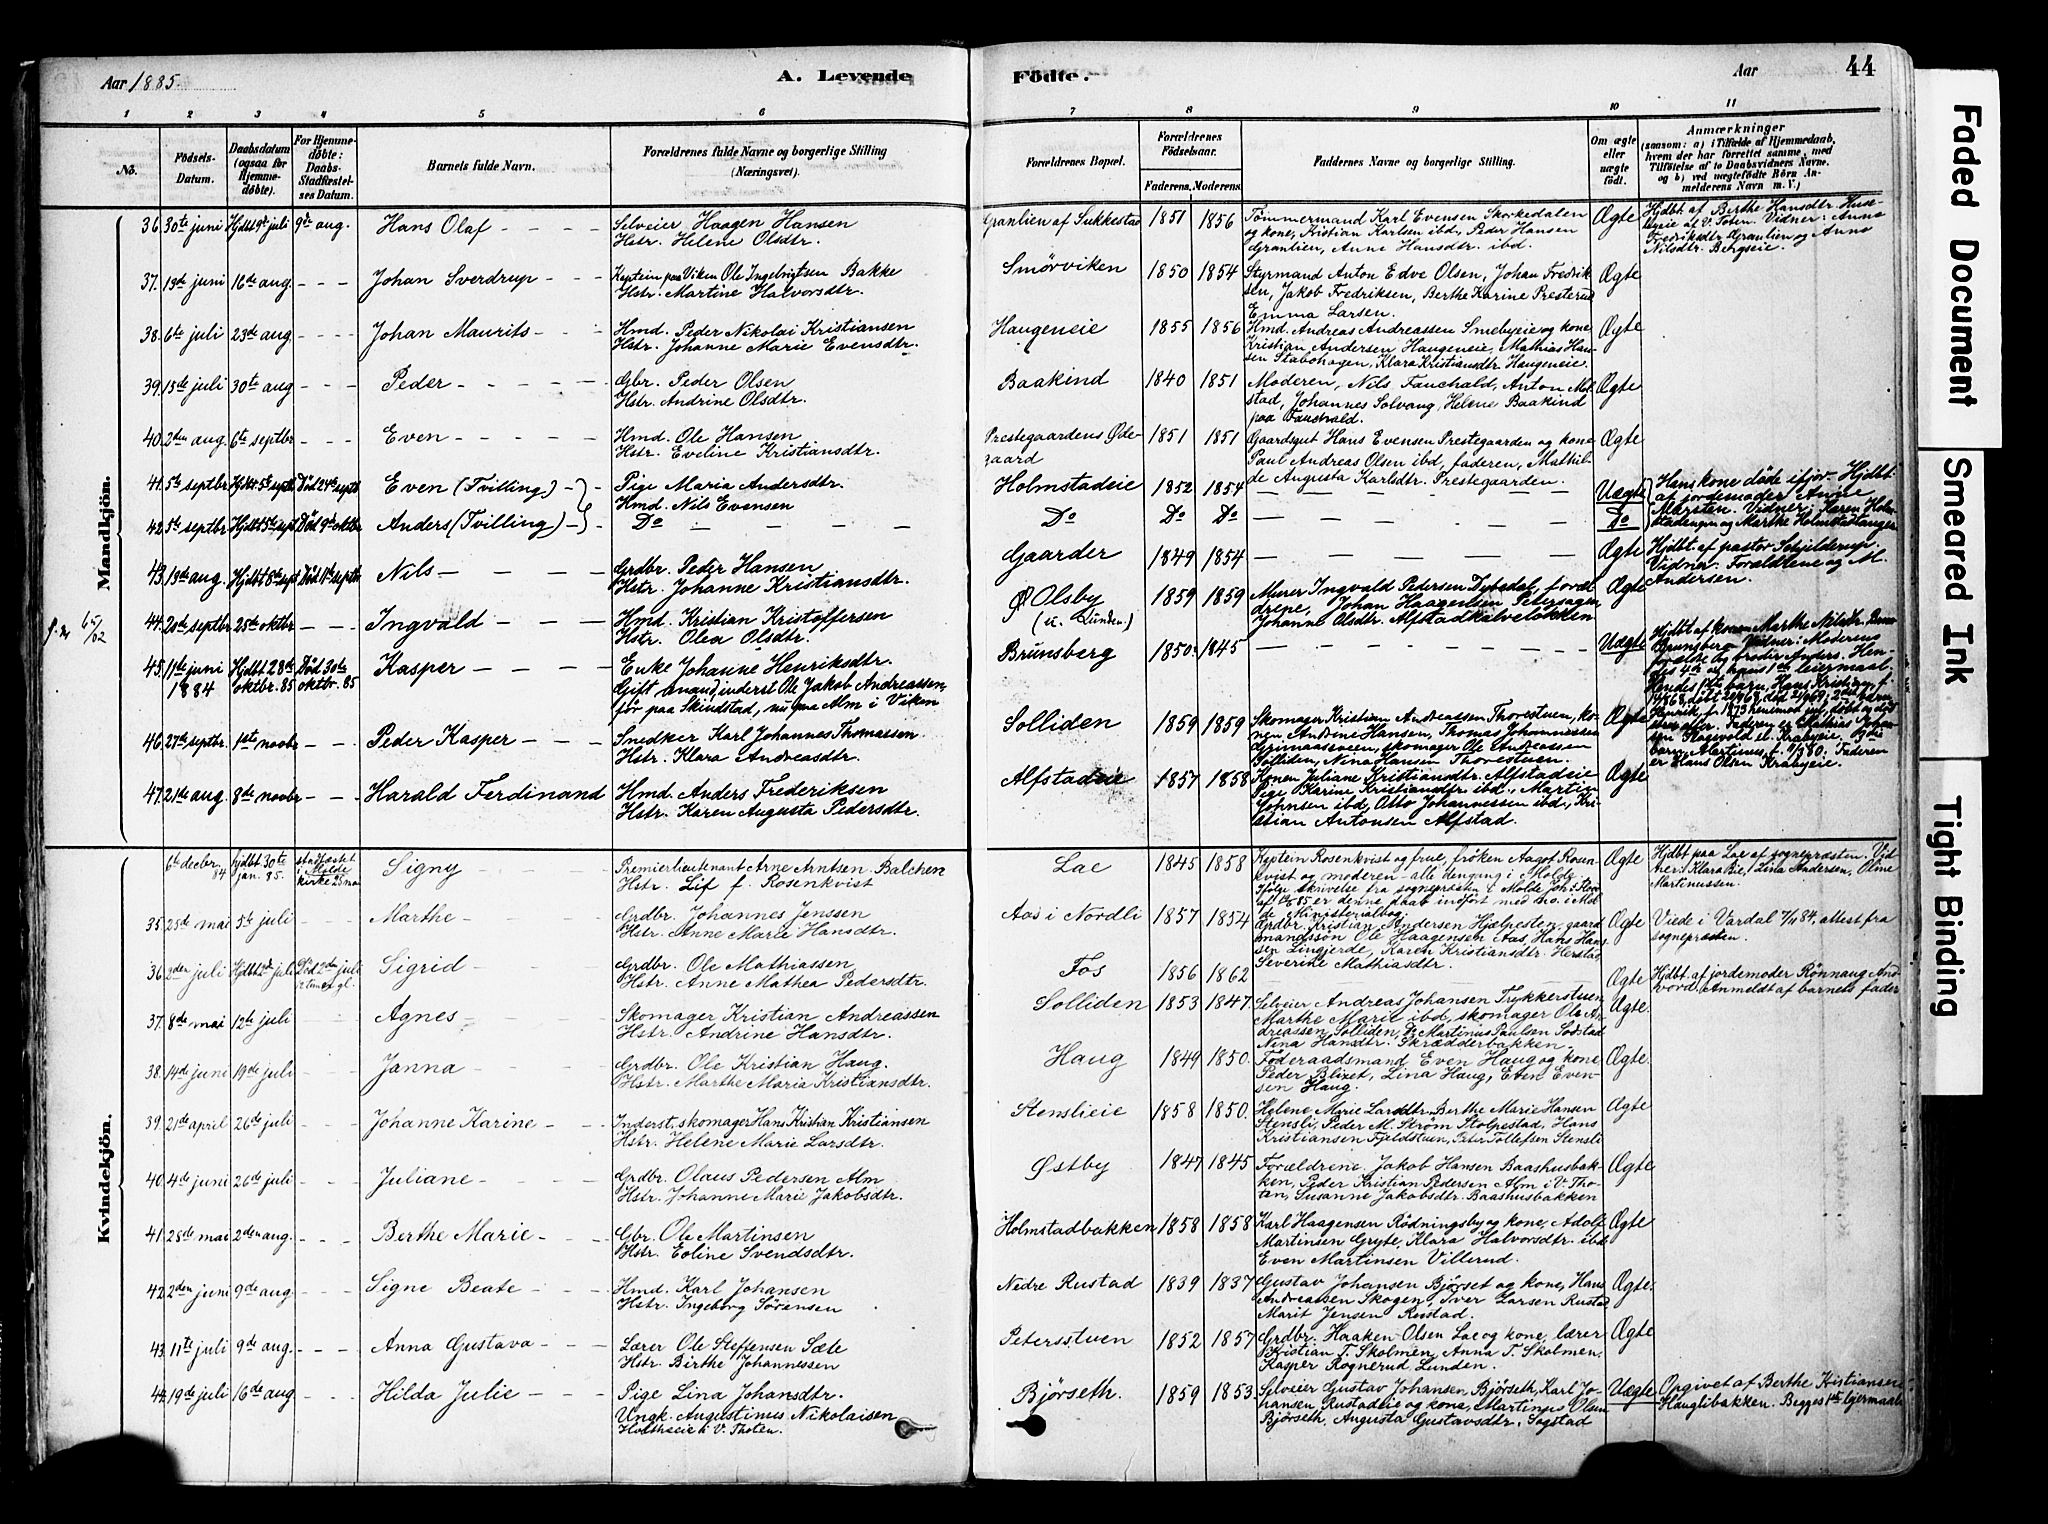 Aar 1885.
A. Levende
Födte.
Aar
44
1 2 3 4 5 6 7 8 9 10 11
No.
Födsels-Datum.
Daabsdatum (ogsaa for Hjemmedøbte).
For Hjemmedøbte: Daabs-Stadfæstelses Datum.
Barnets fulde Navn.
Forældrenes fulde Navne og borgerlige Stilling (Næringsvei).
Forældrenes Bopæl.
Forældrenes Födselsaar.
Faderens. Moderens.
Faddernes Navne og borgerlige Stilling.
Om ægte eller uægte födt.
Anmærkninger
(saasom: a) i Tilfælde af Hjemmedaab, hvem der har forrettet samme, med Tilföielse af to Daabsvidners Navne, og b) ved uægtefödte Börn Anmelderens Navn m. V.)
Mandkjön.
36. 30te juni Hjdbt 9de juli 9de aug. Hans Olaf
Selveier Haagen Hansen
Hstr. Helene Olsdtr.
Granlien af Sukkestad 1851 1856
Tømmermand Karl Evensen Skorkedalen
og kone, Kristian Karlsen ibd, Peder Hansen
Granlien, Anne Hansdtr. ibd.
Ægte
Hjdbt af Berthe Hansdtr. Hus-
af V. Toten. Vidner: Anne
Fredriksdtr. Granlien og Anne
Nilsdtr. Bergseie.
37. 19de juni 16de aug Johan Sverdrup
Kaptein paa Viken Ole Ingebrigtsen Bakke
Hstr. Martine Halvorsdtr.
Smörviken 1850 1854
Styrmand Anton Edve Olsen, Johan Fredrik-
sen, Jakob Fredriksen, Berthe Karine Presterud
Emma Larsen.
Ægte
38. 6te juli 23de aug Johan Maurits
Hmd. Peder Nikolai Kristiansen
Hstr. Johanne Marie Evensdtr.
Haugeneie 1855 1856
Hmd. Andreas Andreassen Smebyeie og kone
Kristian Andersen Haugeneie, Mathias Han-
sen Stabohagen, Klara Kristiansdtr Haugeneie.
Ægte
39. 15de juli 30te aug Peder
Gbr. Peder Olsen
Hstr. Andrine Olsdtr.
Baakind 1840 1851
Moderen, Nils Fauchald, Anton Mel-
stad, Johannes Solvang, Helene Baakind
paa Fauchald.
Ægte
40. 2den aug. 6te septbr Even
Hmd. Ole Hansen
Hstr. Eveline Kristiansdtr.
Prestegaardens Øde-
gaard 1851 1851
Gaardsgut Hans Evensen Prestegaarden og kone
Paul Andreas Olsen ibd, faderen, Mathil-
de Augusta Karlsdtr. Prestegaarden.
Ægte
41. 5te septbr Hjdbt 5te septb Död 24de septb Even (Tvilling)
Pige Maria Andersdtr.
Hmd. Nils Evensen
Holmstadeie 1852 1854
Uægte
Hans kone døde ifjor. Hjdbt
af jordemader Anne
Marsten. Vidner: Karen Holm-
stadengen og Marthe Holmstadhanger
42. 5te septbr Hjdbt 5te sept Död 9de oktbr Anders (Tvilling)
Do
Do Do Do
Do
43. 19de aug. Hjdbt 8de sept Död 11te septbr Nils
Grdbr. Peder Hansen
Hstr. Johanne Kristiansdtr.
Gaarder 1849 1854
Ægte
Hjdbt. af pastor Schjelderup.
Vidner: Forældrene og M.
Andersen.
44. 20de septbr 25de oktbr Ingvald
Hmd. Kristian Kristoffersen
Hstr. Olea Olsdtr.
Ø Olsby
(u. Lunden) 1859 1859
Murer Ingvald Pedersen Dybedal, foræl-
drene, Johan Haagensen Petershagen
Johanne Olsdtr. Alfstadkalveløkken
Ægte
45. 11te juni 1884 Hjdbt 28de oktbr. 85 Död 30te oktbr. 85 Kasper
Enke Johanne Henriksdtr.
Gift mand, inderst Ole Jakob Andreassen,
før paa Skindstad, nu paa Alm i Viken
Brunsberg 1850 1845
Uægte
Hjdbt af konen Marthe Nilsdtr.
Brunsberg. Vidner: Moderens
forældre og broder Anders. Hen-
des 4de og hans 1ste leiermaal.
46. 27de septbr. 1ste novbr Peder Kasper
Snedker Karl Johannes Thomassen
Hstr. Klara Andreasdtr.
Solliden 1859 1859
Skomager Kristian Andreassen Thorestuen, ko-
nen Andrine Hansen, Thomas Johannessen
Grimaasveen, skomager Ole Andreassen
Solliden, Nina Hansen Thorestuen.
Ægte
barn, Martinus f. 9/3 80. Faderen
er Hans Olsen Krabyeie.
47. 21de aug. 8de novbr Harald Ferdinand
Hmd. Anders Frederiksen
Hstr. Karen Augusta Pedersdtr.
Alfstadeie 1857 1858
Konen Juliane Kristiansdtr. Alfstadeie
Pige Karine Kristiansdtr ibd., Martin
Johnsen ibd, Otto Johannessen ibd., Kri-
stian Antonsen Alfstad.
Ægte
Kvindekjön.
6te decbr 84 hjdbt 30te jan. 85. stadfæstet i Molde kirke 25 mai Signy
Premierlieutenant Arne Arntsen Balchen
Hstr. Lif f. Rosenkvist
Lae 1845 1858
Kaptein Rosenkvist og frue, frøken Aagot Rosen-
kvist og moderen - alle dengang i Molde.
Ifølge skrivelse fra sognepræsten i Molde
er denne daab indført med no. i Mol-
de Ministerialbog.
Ægte
Hjdbt paa Lae af sognepræsten. Vid-
ner: Klara Bie, Lina Andersen, Oline
Martinussen.
35. 25de mai 5te juli Marthe
Grdbr. Johannes Jenssen
Hstr. Anne Marie Hansdtr.
Aas i Nordli 1857 1854
Grdbr. Kristian Andersen Hjælpesten, gaard-
mandssøn Ole Haagensen Aas, Hans Han-
sen Lingjerde, Karen Kristiansdtr. Herstad
Severine Mathiasdtr.
Ægte
Viede i Vardal 7/11 84, attest fra
sognepræsten.
36. 2den juli Hjdbt 2de juli Död 2den juli 12 timer gl. Sigrid
Grdbr. Ole Mathiassen
Hstr. Anne Mathea Pedersdtr.
Fos 1856 1862
Ægte
Hjdbt. af jordemoder Rønnaug And-
vord. Anmeldt af barnets fader
37. 8de mai 12te juli Agnes
Skomager Kristian Andreassen
Hstr. Andrine Hansdtr.
Solliden 1853 1847
Selveier Andreas Johansen Trykkerstuen
Marthe Marie ibd, skomager Ole An-
dreassen, Solliden, Do Martinus Paulsen Sodstad
Nina Hansdtr. Skrædderbakken.
Ægte.
38. 14de juni 19de juli Janna
Grdbr. Ole Kristian Haug.
Hstr. Marthe Maria Kristiansdtr.
Haug 1849 1850.
Føderaadsmand Even Haug og kone
Peder Blixet, Lina Haug, Even Even-
sen Haug.
Ægte.
39. 21de april 26de juli Johanne Karine
Inderst, skomager Hans Kristian Kristiansen
Hstr. Helene Marie Larsdtr.
Stenslieie 1858 1850.
Helene Marie Larsdtr., Berthe Marie Hansen
Stensli, Peder M. Strøm Stolpestad, Hans
Kristiansen Fjeldstuen, Peter Tollefsen Stensli
Ægte
40. 4de juni 26de juli Juliane
Grdbr Olaus Pedersen Alm
Hstr. Johanne Marie Jakobsdtr.
Østby 1847 1845
Forældrene. Jakob Hansen Baashusbak-
ken, Peder Kristian Pedersen Alm i V. Tho-
ten, Susanne Jakobsdtr. Baashusbakken
Ægte.
41. 28de mai 2den aug. Berthe Marie
Gbr. Ole Martinsen
Hstr. Eoline Svendsdtr.
Holmstadbakken 1858 1858
Karl Haagensen Rødningsby og kone, Adolf
Martinsen Gryte, Klara Halvorsdtr. ibd
Even Martinsen Villerud.
Ægte
42. 2den juni 9de aug. Signe Beate
Hmd. Karl Johansen
Hstr. Ingeborg Sörensen
Nedre Rustad 1839 1837
Gustav Johansen Bjørset og kone, Hans
Andreassen Skogen, Iver Larsen Rustad
Marit Jensen Rustad.
Ægte.
43. 11te juli 9de aug. Anna Gustava
Lærer Ole Steffensen Sæte
Hstr Birthe Johannessen
Petersstuen 1852 1857
Grdbr. Haaken Olsen Lae og kone, lærer
Kristian T. Skolmen, Anna T. Skolmen,
Kasper Rognerud, Lunden.
Ægte
44. 19de juli 16de aug Hilda Julie
Pige Lina Johansdtr.
Ungk. Augustinus Nikolaisen
V. Thoten.
Bjørseth. 1859 1853
Selveier Gustav Johansen Bjørseth, Karl Jo-
hansen, Rustadeie og kone, Martinus Olsen
Bjørseth, Augusta Gustavsdtr. Sogstad
Uægte
Opgivet af Berthe Kristiansen
Hauglibakken. Begges 1ste leiermaal.
Faded Document
Smeared Ink
Tight Binding